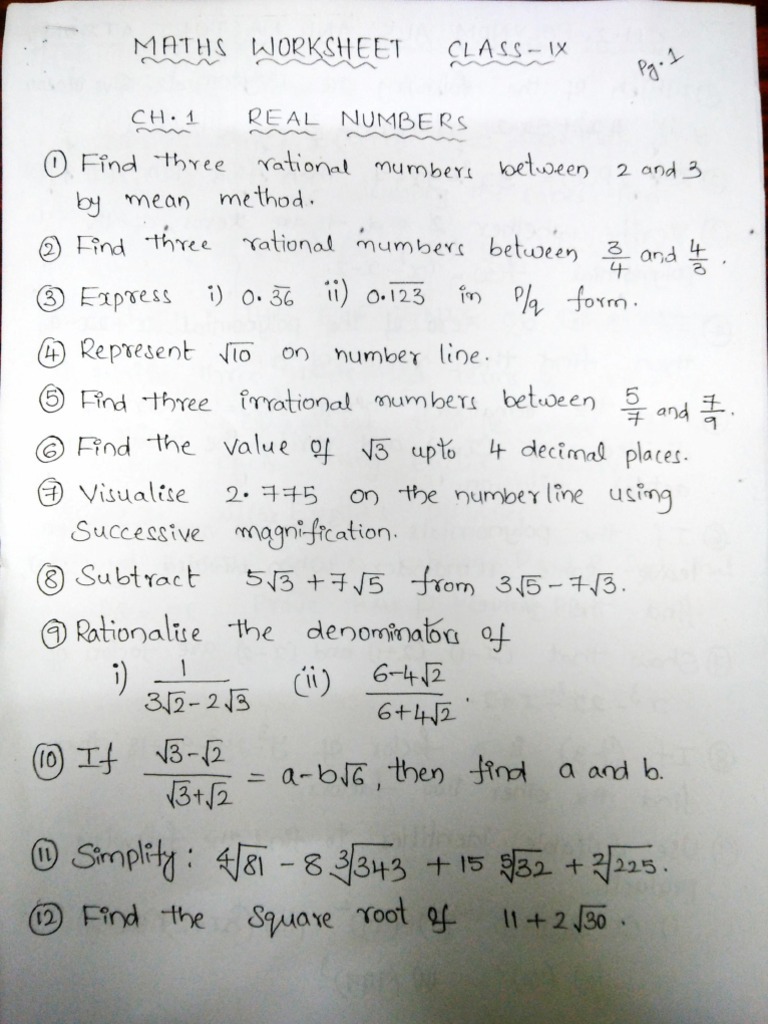 MATHS WORKSHEET CLASS-IX Pg.1
CH.1 REAL NUMBERS
① Find three rational numbers between 2 and 3
by mean method.
② Find three rational numbers between 3/4 and 4/3.
③ Express i) 0.3̅6̅ ii) 0.1̅2̅3̅ in P/q form.
④ Represent √10 on number line.
⑤ Find three irrational numbers between 5/7 and 7/9.
⑥ Find the value of √3 upto 4 decimal places.
⑦ Visualise 2.775 on the numberline using
Successive magnification.
⑧ Subtract 5√3 + 7√5 from 3√5 - 7√3.
⑨ Rationalise the denominators of
i) 1/(3√2 - 2√3) (ii) (6-4√2)/(6+4√2).
⑩ If (√3-√2)/(√3+√2) = a-b√6, then find a and b.
⑪ Simplify: ∜81 - 8 ∛343 + 15 ⁵√32 + ²√225.
⑫ Find the Square root of 11 + 2√30.